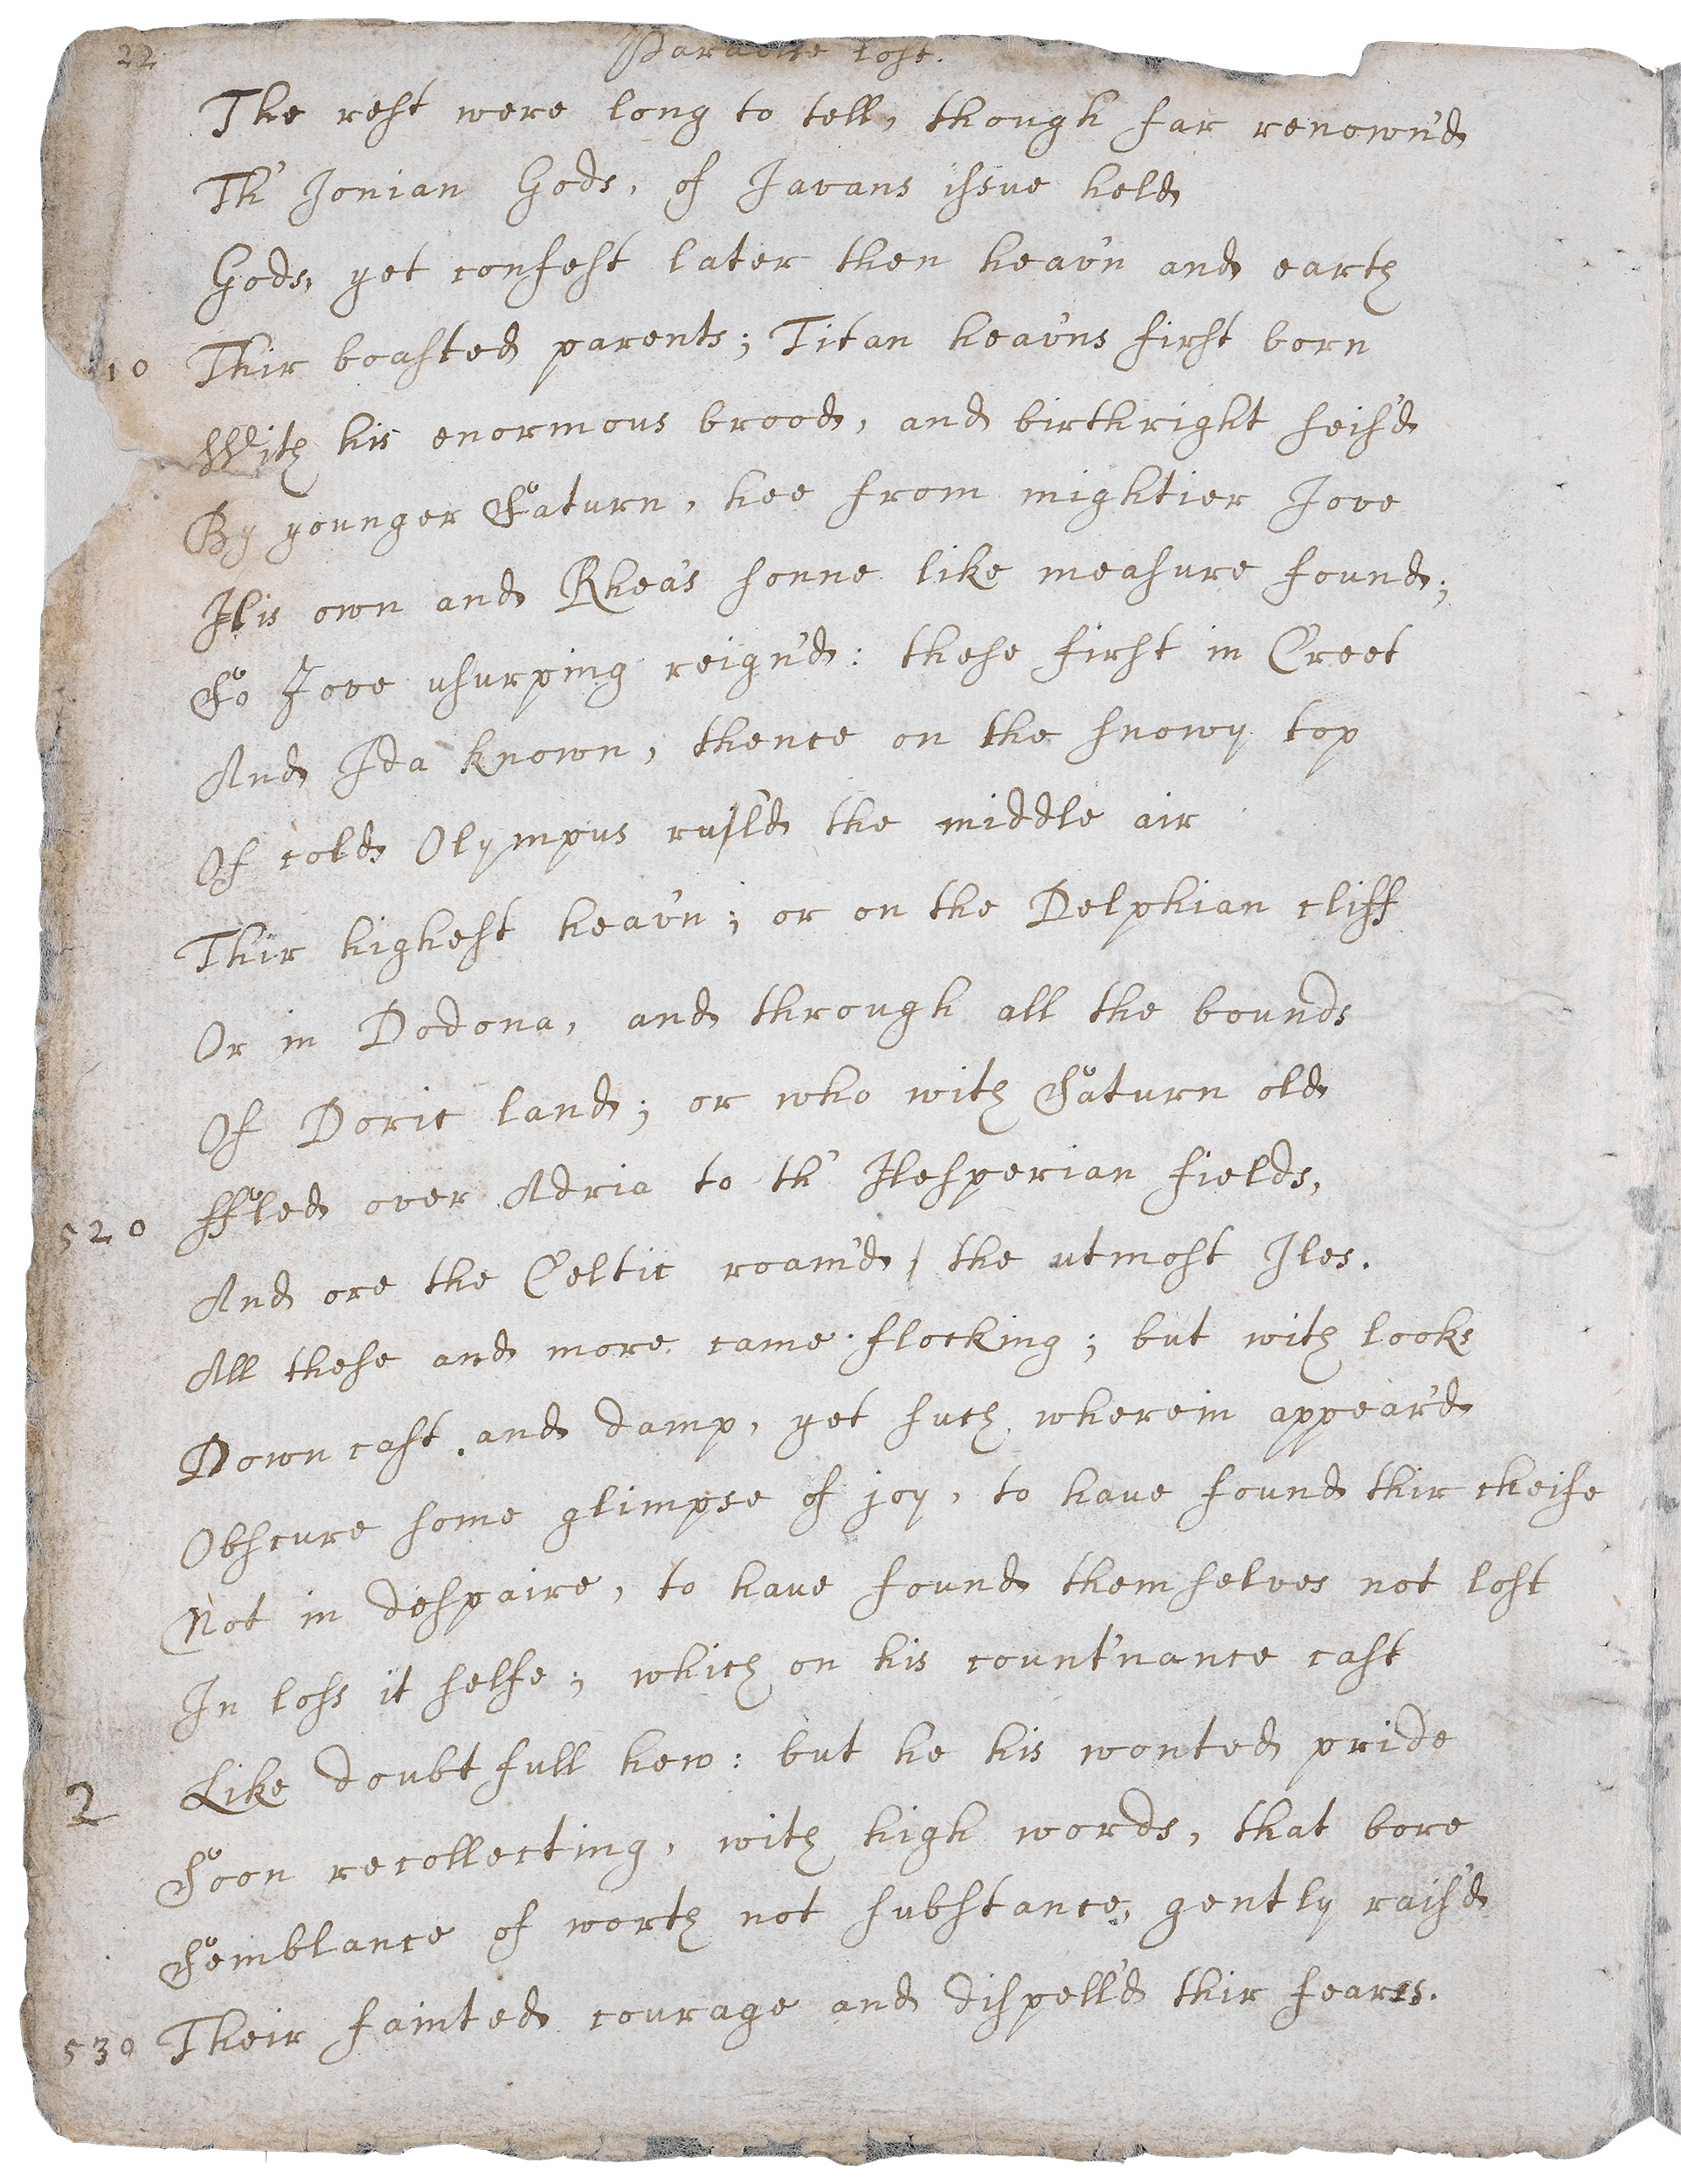 22
Paradise lost.
The rest were long to tell, though far renown'd
Th' Ionian Gods, of Javans issue held
Gods, yet confest later then heav'n and earth
10 Thir boasted parents; Titan heav'ns first born
With his enormous brood, and birthright seis'd
By younger Saturn, hee from mightier Jove
His own and Rhea's sonne like measure found;
So Jove usurping reign'd: these first in Creet
And Ida known, thence on the snowy top
Of cold Olympus rul'd the middle air
Thir highest heav'n; or on the Delphian cliff
Or in Dodona, and through all the bounds
Of Doric land; or who with Saturn old
520 ffled over Adria to th' Hesperian fields,
And ore the Celtic roam'd the utmost Iles.
All these and more came flocking; but with looks
Down cast and damp, yet such wherein appear'd
Obscure some glimpse of joy, to have found thir cheife
Not in despaire, to have found themselves not lost
In loss it selfe; which on his count'nance cast
2 Like doubtfull hew: but he his wonted pride
Soon recollecting, with high words, that bore
Semblance of worth not substance, gently rais'd
530 Their fainted courage and dispell'd thir feares.